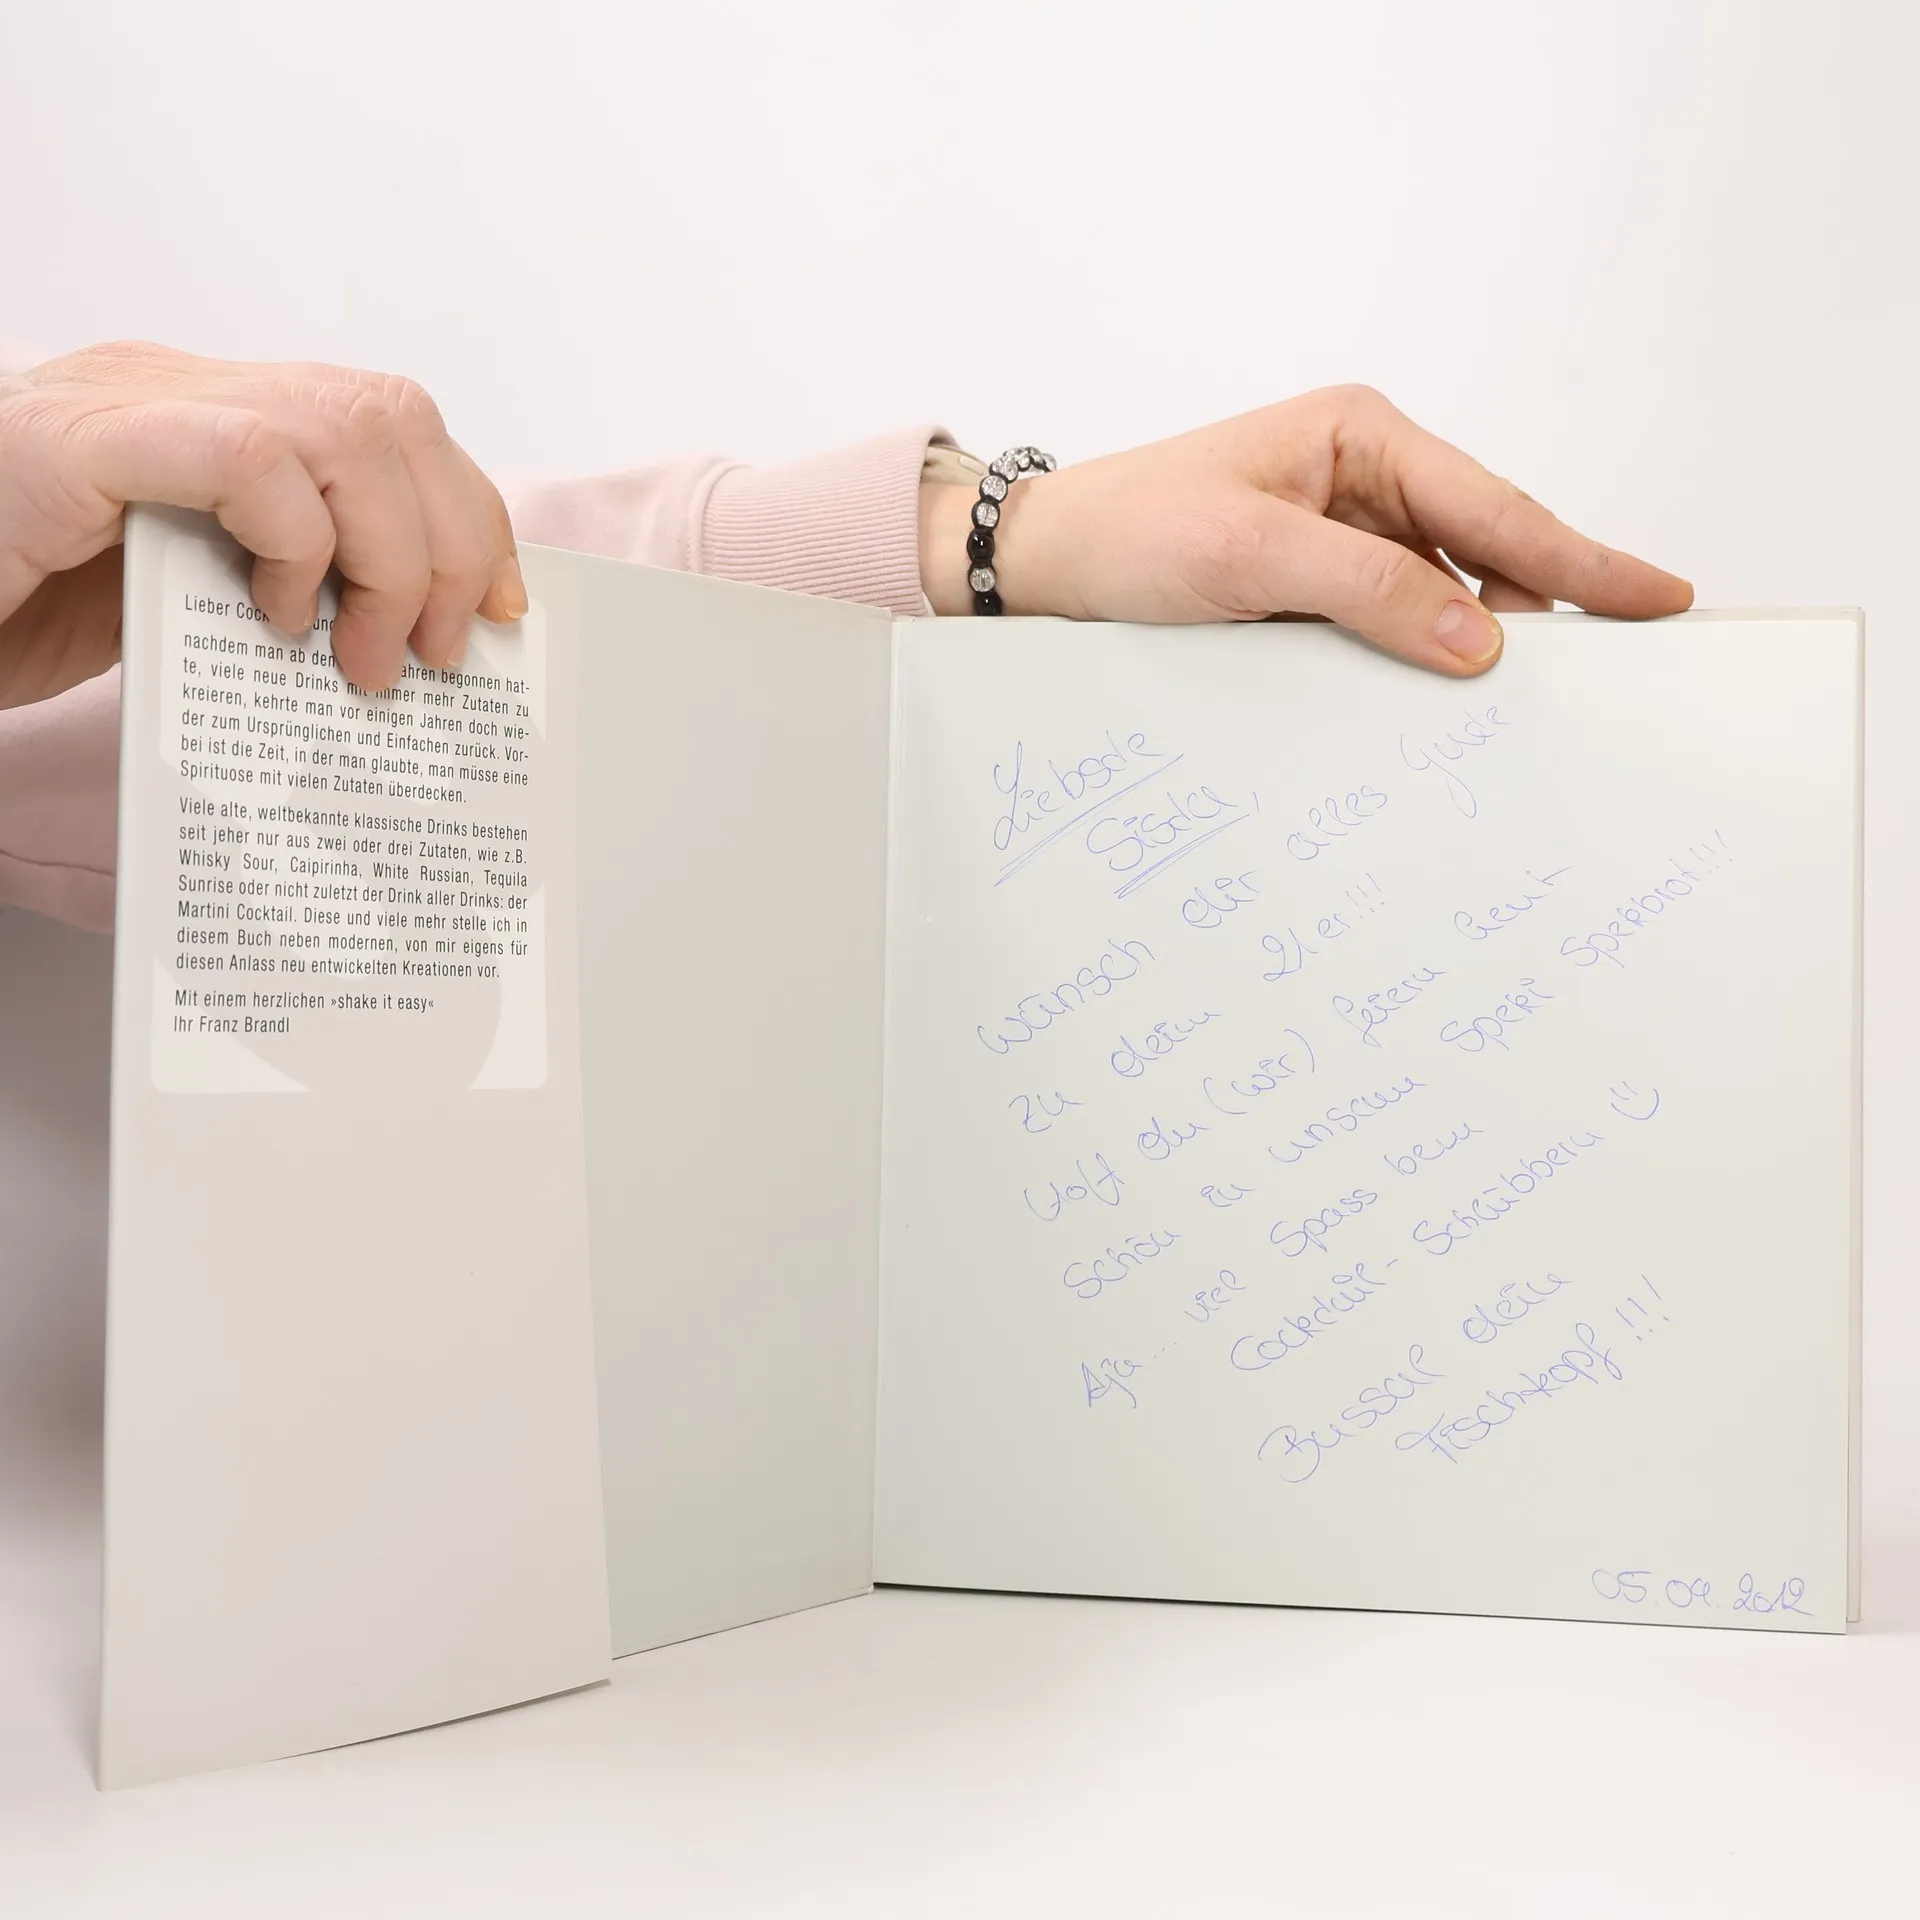 Lieber
nachdem man ab den ahren begonnen hat-
te, viele neue Drinks mit immer mehr Zutaten zu
kreieren, kehrte man vor einigen Jahren doch wie-
der zum Ursprünglichen und Einfachen zurück. Vor-
bei ist die Zeit, in der man glaubte, man müsse eine
Spirituose mit vielen Zutaten überdecken.
Viele alte, weltbekannte klassische Drinks bestehen
seit jeher nur aus zwei oder drei Zutaten, wie z.B.
Whisky Sour, Caipirinha, White Russian, Tequila
Sunrise oder nicht zuletzt der Drink aller Drinks: der
Martini Cocktail. Diese und viele mehr stelle ich in
diesem Buch neben modernen, von mir eigens für
diesen Anlass neu entwickelten Kreationen vor.
Mit einem herzlichen »shake it easy«
Ihr Franz Brandl
Liebste
Sista,
wünsch dir alles Gute
zu deim 21er!!!
Hoff du (wir) feiern heut
schön in unsam Speki Spekbrot!!!
Aja... viel Spass beim
Cocktail-Schlübbern
Bussal dein
Fischkopf!!!
05.04.2012